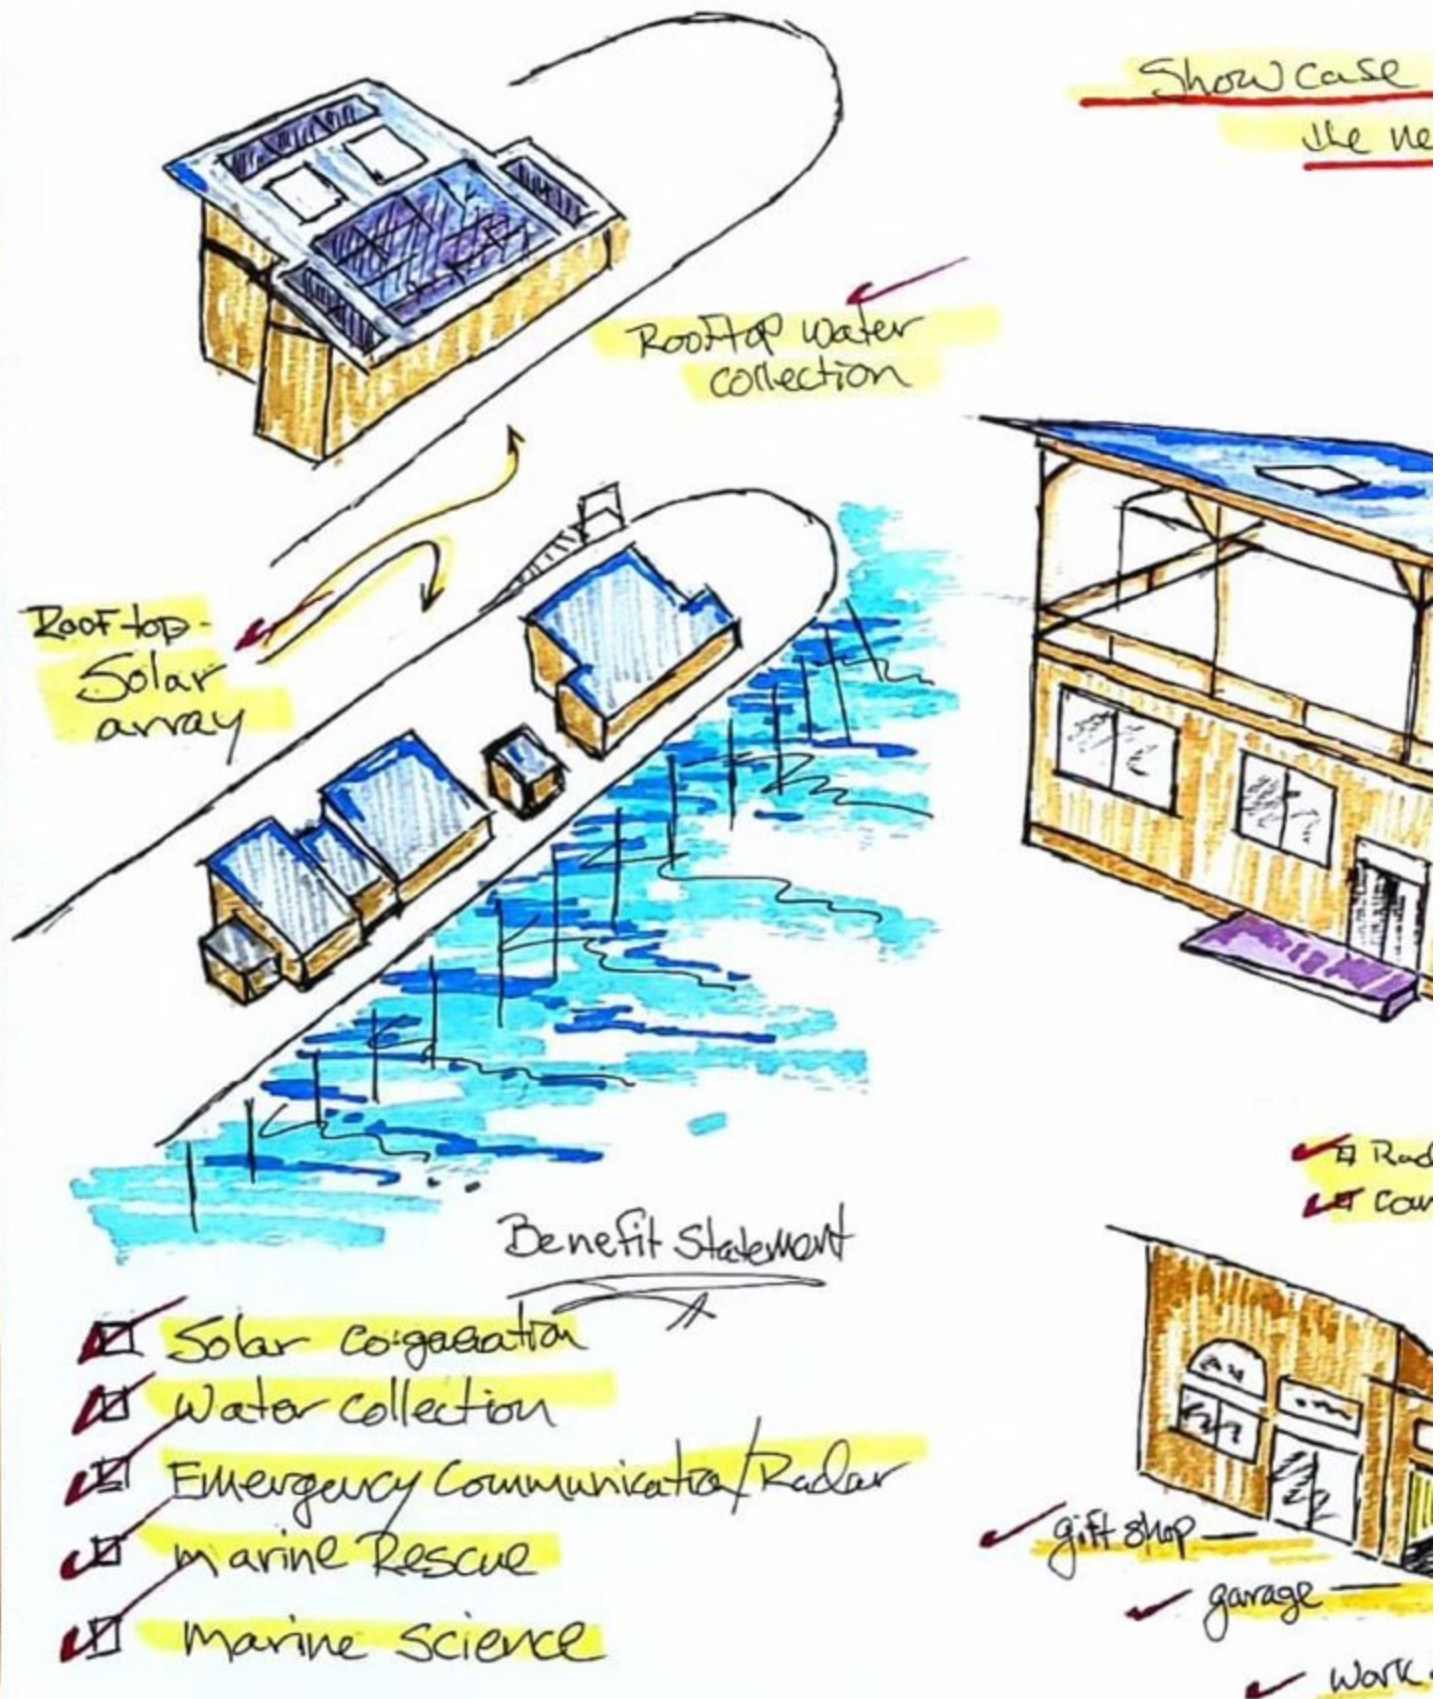 Showcase
the ne
Rooftop water
collection
Rooftop-
Solar
array
Benefit Statement
Solar co-generation
Water collection
Emergency Communication/Radar
marine Rescue
marine science
Rad
Com
gift shop
garage
work